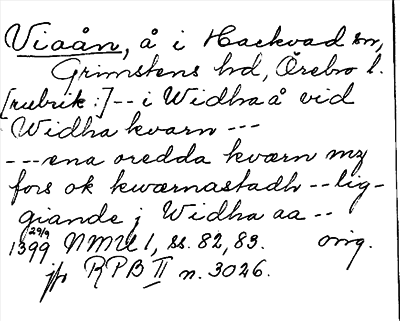 Viaån, å i Hackvad sn,
Grimstens hd, Örebro l.
[rubrik:] -- i Widha å vid
Widha kvarn ---
--- ena oredda kværn mz
fors ok kwærnastadh -- lig-
giande j Widha aa --
29/9
1399 NMU 1, ss. 82, 83. orig.
jfr RPB II n. 3026.